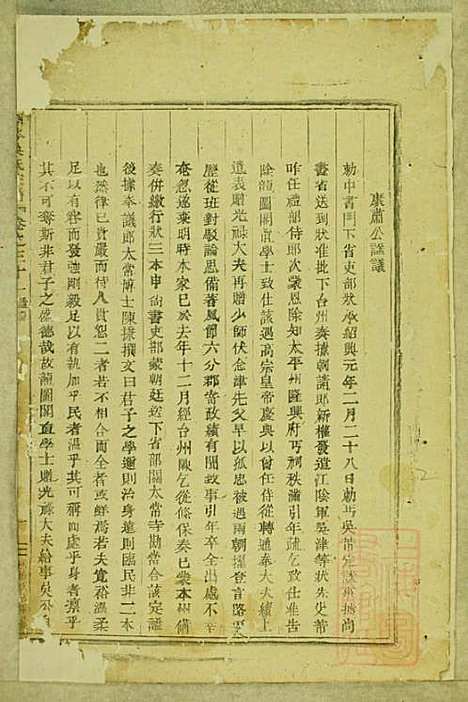 康肅公謚議
勅中書門下省吏部狀承紹興元年二月二十八日勅丐吳芾定謚事據尚
書省送到狀准批下台州奏據朝請郎新權發遣江陰軍吳津等狀先史芾
昨任禮部侍郎次蒙恩除知太平州隆興府丐祠秩滿引年疏乞致仕告
除龍圖閣直學士致仕該遇高宗皇帝慶典以曾任侍從轉通奉大夫續上
遺表贈光祿大夫再贈少師伏念津先父早以孤忠被過兩朝擢登言路
歷從班對駁論思備著風節六分郡寄政績有聞故事引年卒全出處不幸
奄忽遂棄明時本家已於去年十二月經台州陳乞從條保奏已蒙本州備
奏併繳行狀三本申尚書吏部蒙朝廷送下省部關太常寺勘當合該定謚
後據奉議郎太常博士陳㨿撰文曰君子之學邇則治身遠則臨民非二本
也然律已貴嚴而與人貴恕二者若不相合者或鮮焉若夫寬裕溫柔
足以有容而發強剛毅足以有執加乎民者溫乎其可親而處乎身者凛乎
其不可奪斯非君子之盛德哉故龍圖閣直學士贈光祿大夫給事吳公